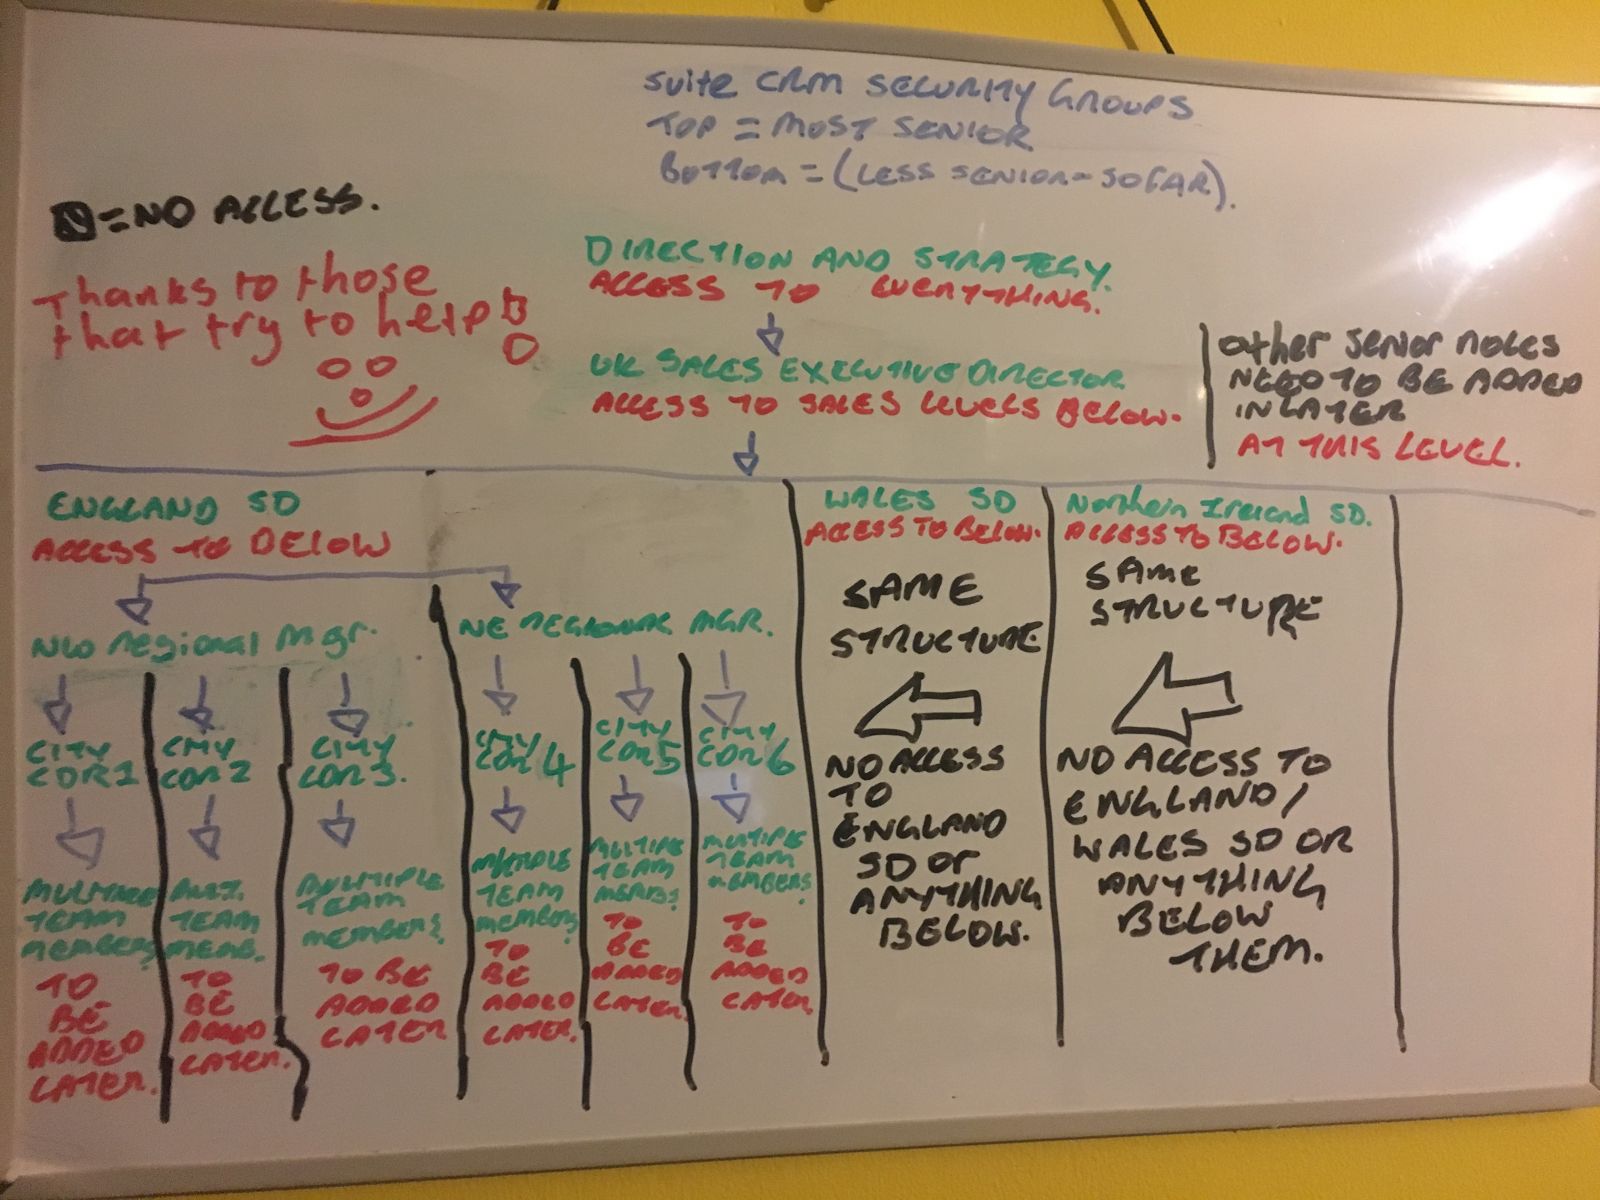 Suite CRM SECURITY GROUPS
TOP = MOST SENIOR
BOTTOM = (LESS SENIOR - SO FAR).
= NO ACCESS.
Thanks to those
that try to help!
DIRECTION AND STRATEGY.
ACCESS TO EVERYTHING.
UK SALES EXECUTIVE DIRECTOR
ACCESS TO SALES LEVELS BELOW.
Other senior roles
NEED TO BE ADDED
IN LATER
AT THIS LEVEL.
ENGLAND SD
ACCESS TO BELOW
NW regional Mgr.
CITY
CDR 1
MULTIPLE
TEAM
MEMBERS
TO
BE
ADDED
LATER.
CITY
CDR 2
MULT.
TEAM
MEMB.
TO
BE
ADDED
LATER.
CITY
CDR 3.
MULTIPLE
TEAM
MEMBERS
TO BE
ADDED
LATER
NE REGIONAL MGR.
CITY
CDR 4
MULTIPLE
TEAM
MEMBERS
TO
BE
ADDED
LATER.
CITY
CDR 5
MULTIPLE
TEAM
MEMBERS
TO
BE
ADDED
LATER.
CITY
CDR 6
MULTIPLE
TEAM
MEMBERS
TO
BE
ADDED
LATER
WALES SD
ACCESS TO BELOW.
SAME
STRUCTURE
NO ACCESS
TO
ENGLAND
SD OR
ANYTHING
BELOW.
Northern Ireland SD.
ACCESS TO BELOW.
SAME
STRUCTURE
NO ACCESS TO
ENGLAND/
WALES SD OR
ANYTHING
BELOW
THEM.